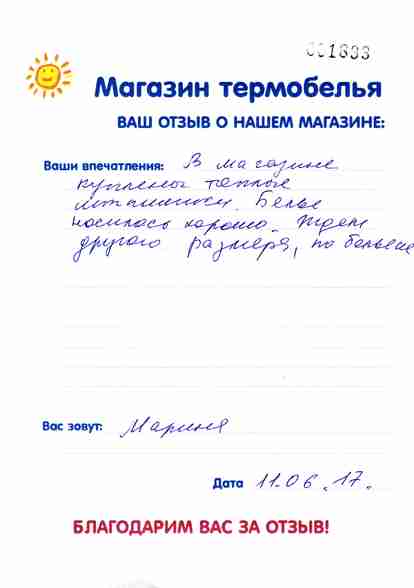 001833
Магазин термобелья
ВАШ ОТЗЫВ О НАШЕМ МАГАЗИНЕ:
Ваши впечатления: В магазине
куплены теплые
штанишки. Белье
носилось хорошо. Ждем
другого размера, по больше
Вас зовут: Марина
Дата 11.06.17.
БЛАГОДАРИМ ВАС ЗА ОТЗЫВ!